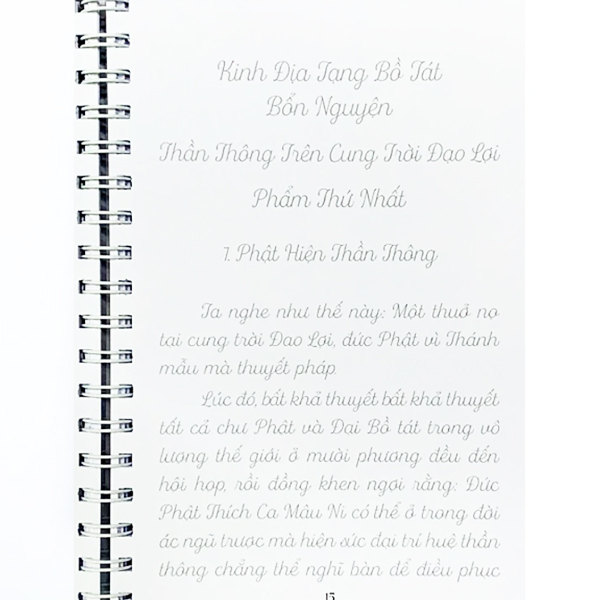 Kinh Địa Tạng Bồ Tát
Bổn Nguyện
Thần Thông Trên Cung Trời Đạo Lợi
Phẩm Thứ Nhất
1. Phật Hiện Thần Thông
Ta nghe như thế này: Một thuở nọ
tại cung trời Đao Lợi, đức Phật vì Thánh
mẫu mà thuyết pháp
Lúc đó, bất khả thuyết bất khả thuyết
tất cả chư Phật và Đại Bồ tát trong vô
lượng thế giới ở mười phương đều đến
hội họp, rồi đồng khen ngợi rằng: Đức
Phật Thích Ca Mâu Ni có thể ở trong đời
ác ngũ trược mà hiện sức đại trí huệ thần
thông chẳng thể nghĩ bàn để điều phục
15